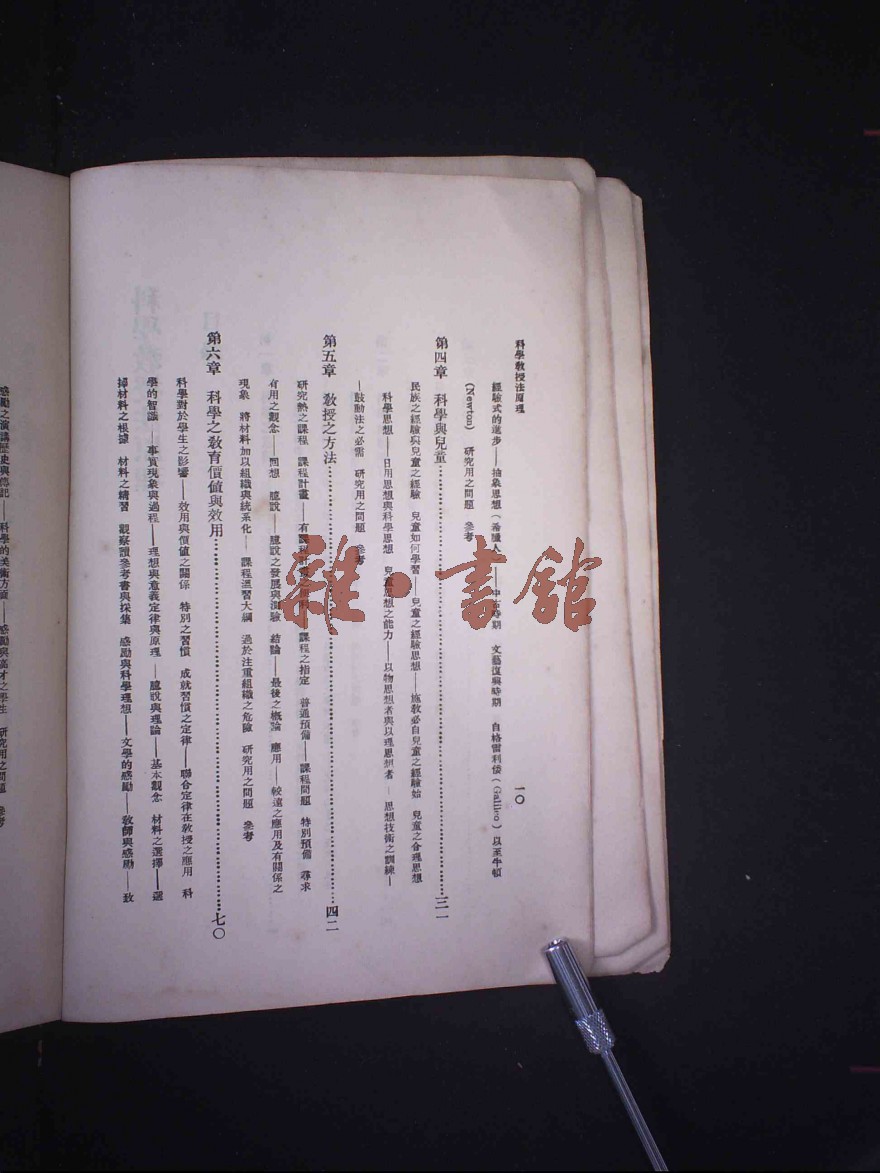 科學教授法原理
一〇
經驗式的進步——抽象思想（希臘人）——中古時期　文藝復興時期　自格雷利倭（Galileo）以至牛頓
(Newton)　研究用之問題　參考
第四章　科學與兒童……三一
民族之經驗與兒童之經驗　兒童如何學習——兒童之經驗思想——施教必自兒童之經驗始　兒童之合理思想
科學思想——日用思想與科學思想　兒童思想之能力——以物思想者與以理思想者——思想技術之訓練—
—鼓動法之必需　研究用之問題　參考
第五章　教授之方法……四二
研究熟之課程　課程計畫——有課程計畫之——課程之指定　普通預備——課程問題　特別預備　尋求
有用之觀念——回想　臆說——臆說之發展與測驗　結論——最後之概論　應用——較遠之應用及有關係之
現象　將材料加以組織與統系化——課程溫習大綱　過於注重組織之危險　研究用之問題　參考
第六章　科學之教育價值與效用……七〇
科學對於學生之影響——效用與價值之關係　特別之習慣　成就習慣之定律——聯合定律在教授之應用　科
學的智識——事實現象與過程——理想與意義定律與原理——臆說與理論——基本觀念　材料之選擇——選
擇材料之根據　材料之精習　觀察讀參考書與採集　感勵與科學理想——文學的感勵——教師與感勵——致
感勵之演講歷史與傳記——科學的美術方面——感勵與高才之學生　研究用之問題　參考
雜·書館